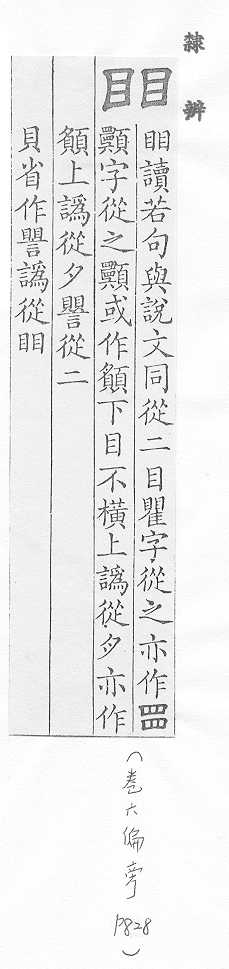 隸辨
䀠
䀠讀若句與說文同從二目瞿字從之亦作
字從之或作下目不橫上譌從夕亦作
上譌從夕譻從二
貝省作譻譌從䀠
(卷六偏旁 P828)